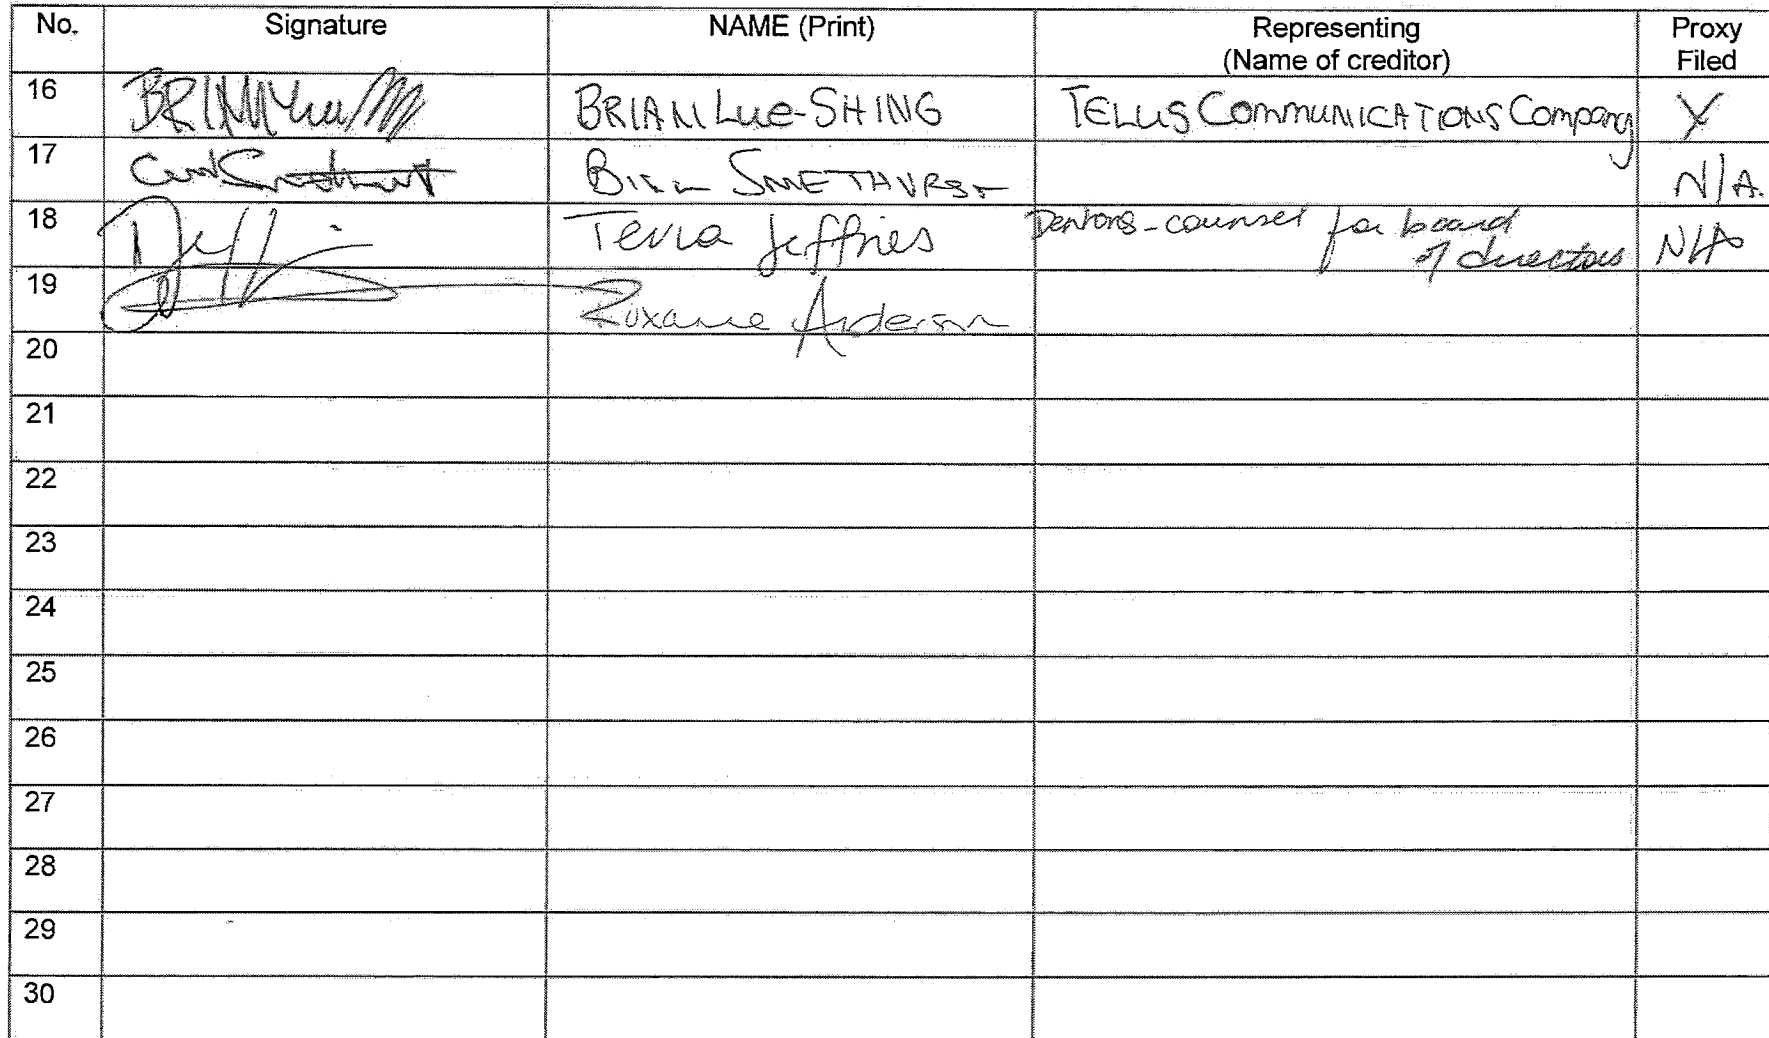 No. Signature NAME (Print) Representing (Name of creditor) Proxy Filed
16 BRIAN LUE-SHING TELUS COMMUNICATIONS COMPANY Y
17 BILL SMETHURST N/A.
18 Terra Jeffries Dentons - counsel for board of directors N/A
19 Roxanne Anderson
20
21
22
23
24
25
26
27
28
29
30